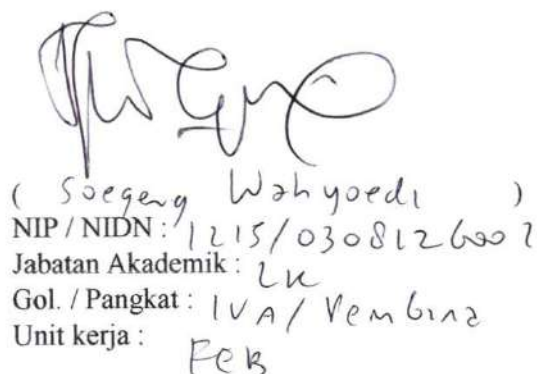 ( Soegeng Wahyoedi )
NIP / NIDN : 1215/0308126002
Jabatan Akademik : LK
Gol. / Pangkat : IVA/ Pembina
Unit kerja : FEB